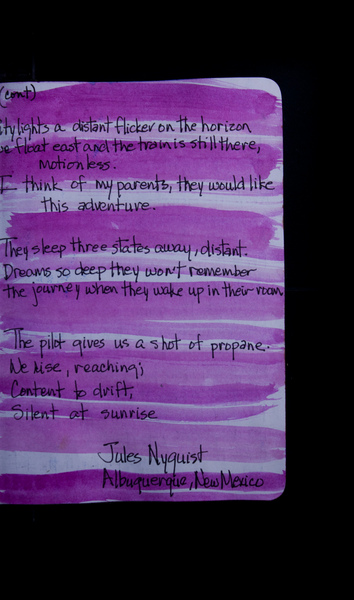 (cont)
itylights a distant flicker on the horizon
we float east and the train is still there,
motionless.
I think of my parents, they would like
this adventure.
They sleep three states away, distant.
Dreams so deep they won't remember
the journey when they wake up in their room
The pilot gives us a shot of propane.
We rise, reaching;
Content to drift,
Silent at sunrise
Jules Nyquist
Albuquerque, New Mexico